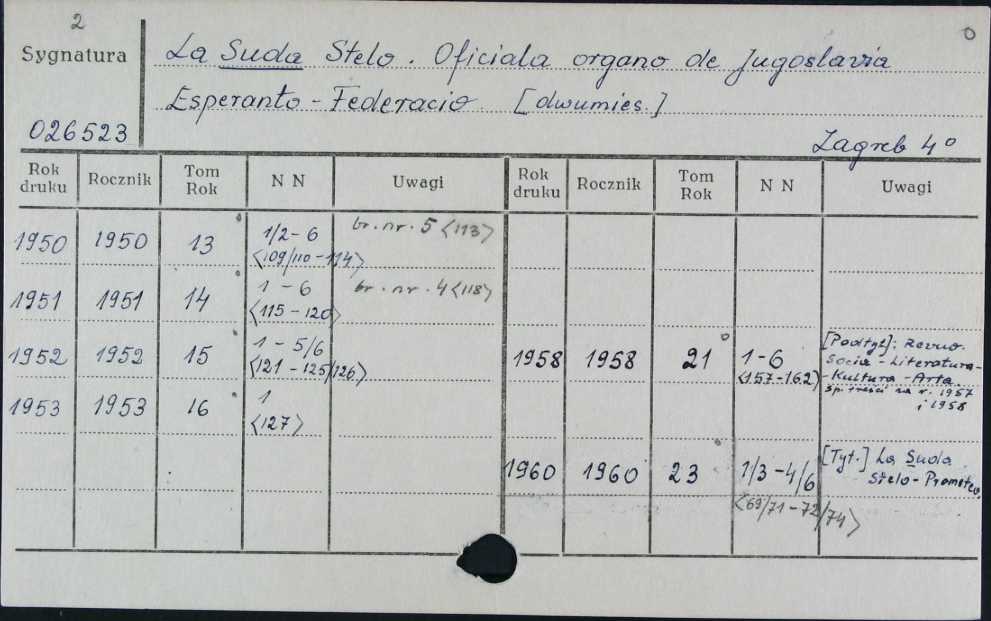 2
0
Sygnatura
La Suda Stelo. Oficiala organo de Jugoslavia
Esperanto-Federacio. [dwumies.]
026523
Zagreb 4°
Rok druku Rocznik Tom Rok N N Uwagi Rok druku Rocznik Tom Rok N N Uwagi
1950 1950 13 1/2-6 br. nr. 5 <113>
<109/110-114>
1951 1951 14 1-6 br. nr. 4 <118>
<115-120>
1952 1952 15 1-5/6
<121-125/126>
1953 1953 16 1
<127>
1958 1958 21 1-6 [Podtyt]: Revuo
<157-162> Socia-Literatura-
-Kultura-Arta.
sp. treści na r. 1957
i 1958
1960 1960 23 1/3-4/6 [Tyt.] La Suda
Stelo-Prometeo.
<69/71-72/74>